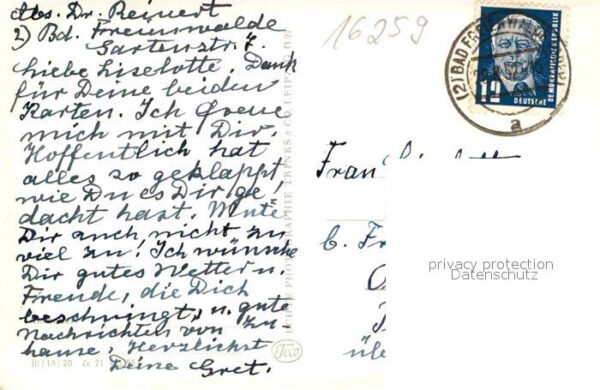 Abs. Dr. Reinert
2) Bd. Freienwalde
Gartenstr. 7.
Liebe Liselotte, Dank
für Deine beiden
Karten. Ich freue
mich mit Dir.
Hoffentlich hat
alles so geklappt
wie Du es Dir ge,
dacht hast. Mute
Dir auch nicht zu
viel zu! Ich wünsche
Dir gutes Wetter u.
Freude, die Dich
beschwingt, u. gute
Nachrichten von zu
hause, Herzlichst
Deine Gret.
16259
(2) BAD FREIENWALDE
a
12
DEUTSCHE
DEMOKRATISCHE REPUBLIK
PHOTOGRAPHIE TRINKS & CO LEIPZIG
Frau Liselotte
b. Fr
üb
privacy protection
Datenschutz
Trico
III/18/20